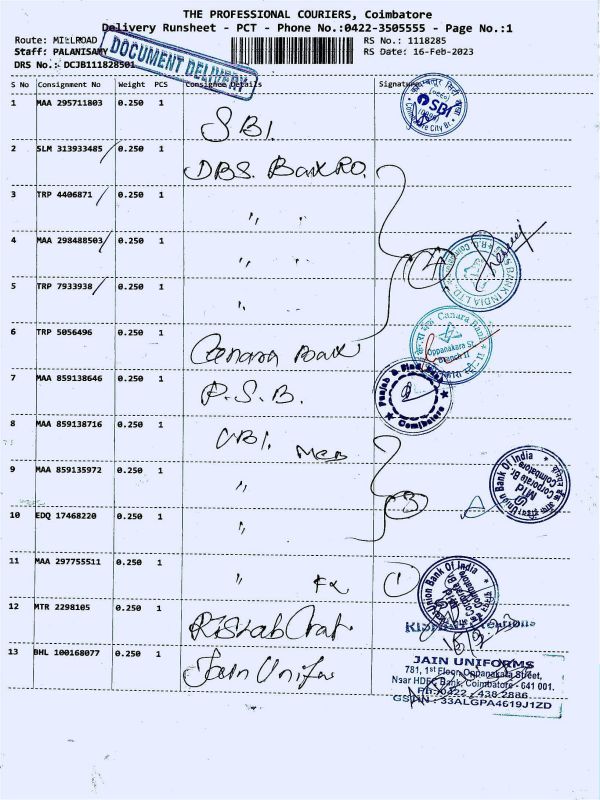 THE PROFESSIONAL COURIERS, Coimbatore
Delivery Runsheet - PCT - Phone No.:0422-3505555 - Page No.:1
Route: MILLROAD
RS No.: 1118285
Staff: PALANISAMY
RS Date: 16-Feb-2023
DRS No.: DCJB111828501
DOCUMENT DELIVERY
S No Consignment No Weight PCS Consignee Details Signature
1 MAA 295711803 0.250 1 SBI.
SBI
City Br.
2 SLM 313933485 0.250 1 DBS. Bank RO.
3 TRP 4406871 0.250 1 "
4 MAA 298488503 0.250 1 " 4
BANK INDIA LTD.
5 TRP 7933938 0.250 1 "
6 TRP 5056496 0.250 1 Canara Bank
Canara Bank
Oppanakara St.
Branch II
7 MAA 859138646 0.250 1 P.S.B.
Punjab & Sind Bank
Coimbatore
8 MAA 859138716 0.250 1 UBI.
9 MAA 859135972 0.250 1 " 3
Union Bank Of India
Mid Corporate Br.
Coimbatore
10 EDQ 17468220 0.250 1 "
11 MAA 297755511 0.250 1 " 1
Union Bank Of India
Mid Corporate Br.
Coimbatore
12 MTR 2298105 0.250 1
13 BHL 100168077 0.250 1 Jain Unifos
JAIN UNIFORMS
781, 1st Floor, Oppanakara Street,
Near HDFC Bank, Coimbatore - 641 001.
Ph : 0422 - 438 2886
GSTIN : 33ALGPA4619J1ZD